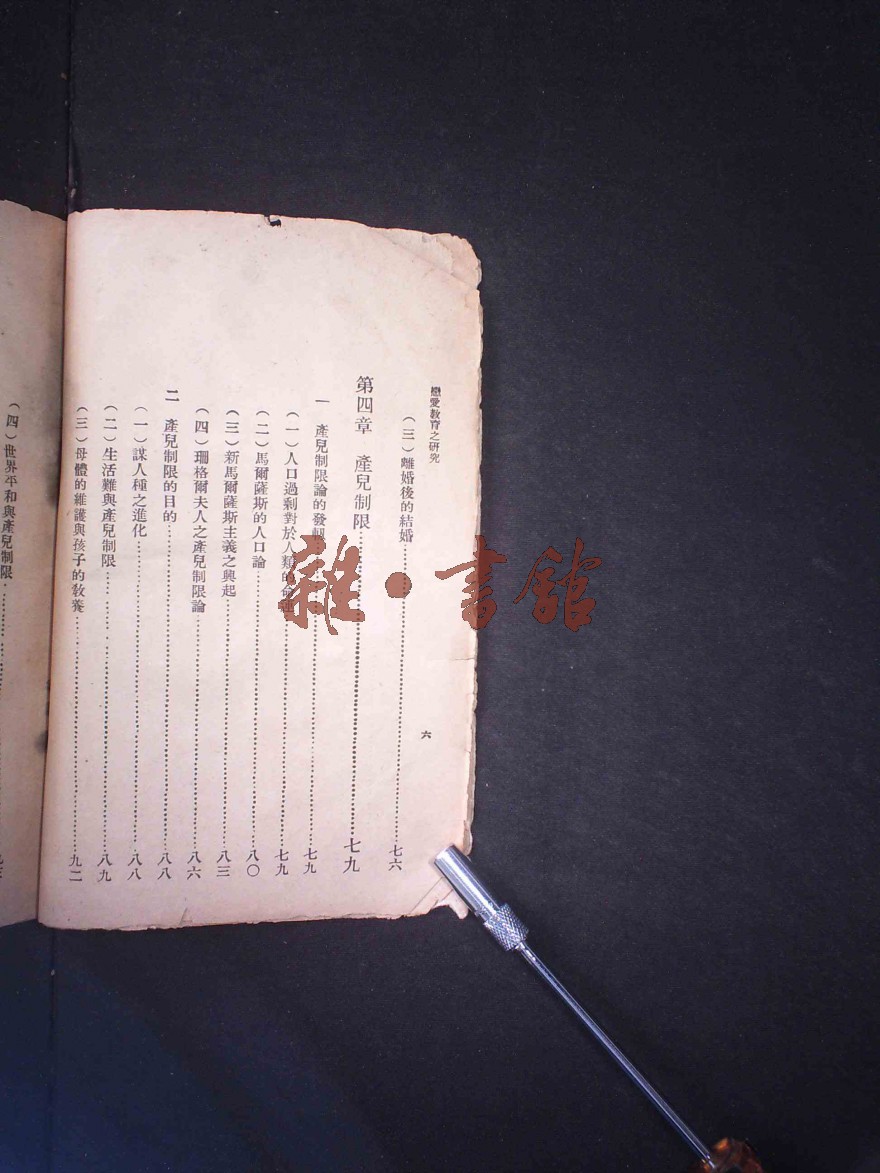 戀愛教育之研究
六
(三)離婚後的結婚……七六
第四章 產兒制限……七九
一 產兒制限論的發軔……七九
(一)人口過剩對於人類的命運……七九
(二)馬爾薩斯的人口論……八〇
(三)新馬爾薩斯主義之興起……八三
(四)珊格爾夫人之產兒制限論……八六
二 產兒制限的目的……八八
(一)謀人種之進化……八八
(二)生活難與產兒制限……八九
(三)母體的維護與孩子的教養……九二
(四)世界平和與產兒制限……
雜·書館